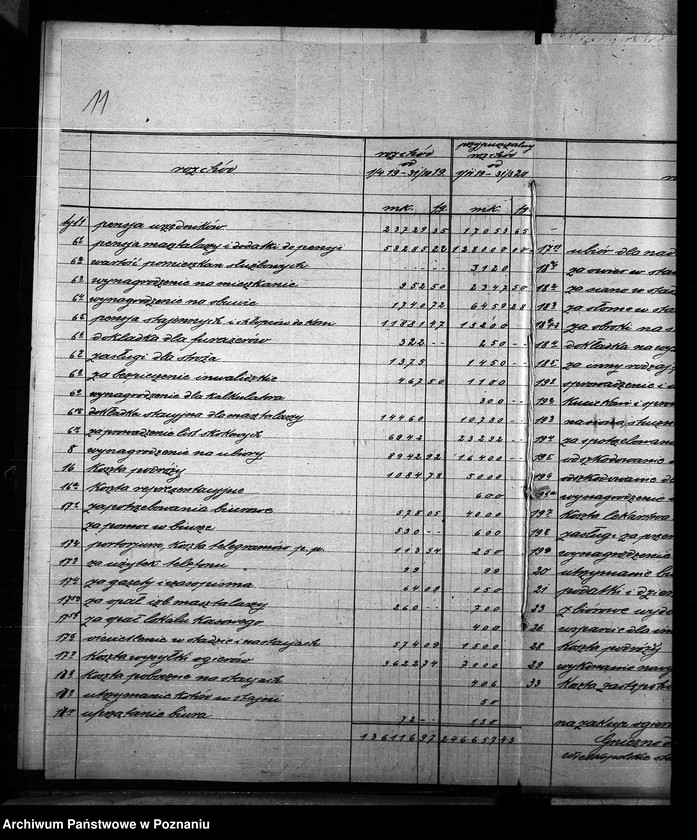 11
rozchód
rozchód
od
1/4 19 - 31/10 19
przypuszczalny
rozchód
od
mk. fg. mk. fg.
tyt 1 pensja urzędników 23729 35 17053 65
6¹ pensja masztalerzy i dodatki do pensji 58285 22 128000 00
6² wartość pomieszkań służbowych 3120
6³ wynagrodzenie na mieszkanie 952 50 2347 50
6⁴ wynagrodzenie na obuwie 1740 72 6459 28
6⁵ pensja stajennych i chłopców do koni 11831 97 13200
dokładka dla furażerów 322 250
zasługi dla stróża 1375 1450
za bezpieczenie inwalidzkie 467 50 1100
wynagrodzenie dla kalkulatora 300
dokładka stacyjna dla masztalerzy 14460 10780
za prowadzenie list skokowych 6842 23292
8 wynagrodzenie na ubiory 8942 92 16400
16 Koszta podróży 1084 78 5000
16ᵃ Koszta reprezentacyjne 600
17¹ zapotrzebowania biurowe 578 05 4000
za pomoc w biurze 530 600
17² portorjum, koszta telegramów p.p. 113 54 250
17³ za użytek telefonu 99 99
17⁴ za gazety i czasopisma 64 09 150
za opał izb masztalerzy 260 700
za opał lokalu Kasowego 400
oświetlenie w stadzie i na stacjach 574 09 1500
Koszta wysyłki ogierów 3622 74 7000
Koszta poboczne na stacjach 406
utrzymanie kotów w stajni 50
uprzątanie biura 72 150
136116 97 246657 43
ubiór dla nad
za owies w sta
za siano w sta
18³ za słomę w sta
za obroki na s
18⁴ dokładka na wy
18⁵ za inny rodzaj
19¹ sprowadzenie i
19³ nasiona,
19⁴ za spotrzebowane
19⁵ odszkodowanie
19⁶ odszkodowanie dl
wynagrodzenie
19⁷ Koszta lekarstwa
19⁸ zasługi za prze
19⁹ wynagrodzenie
20 utrzymanie bu
21 podatki i dzier
23 zbiorowe wyda
26 wsparcie dla in
28 Koszta podróży
29 wykonanie now
33 Koszta zastępstw
na zakup ogiero
Gniezno d
wielkopolskie sta
Archiwum Państwowe w Poznaniu